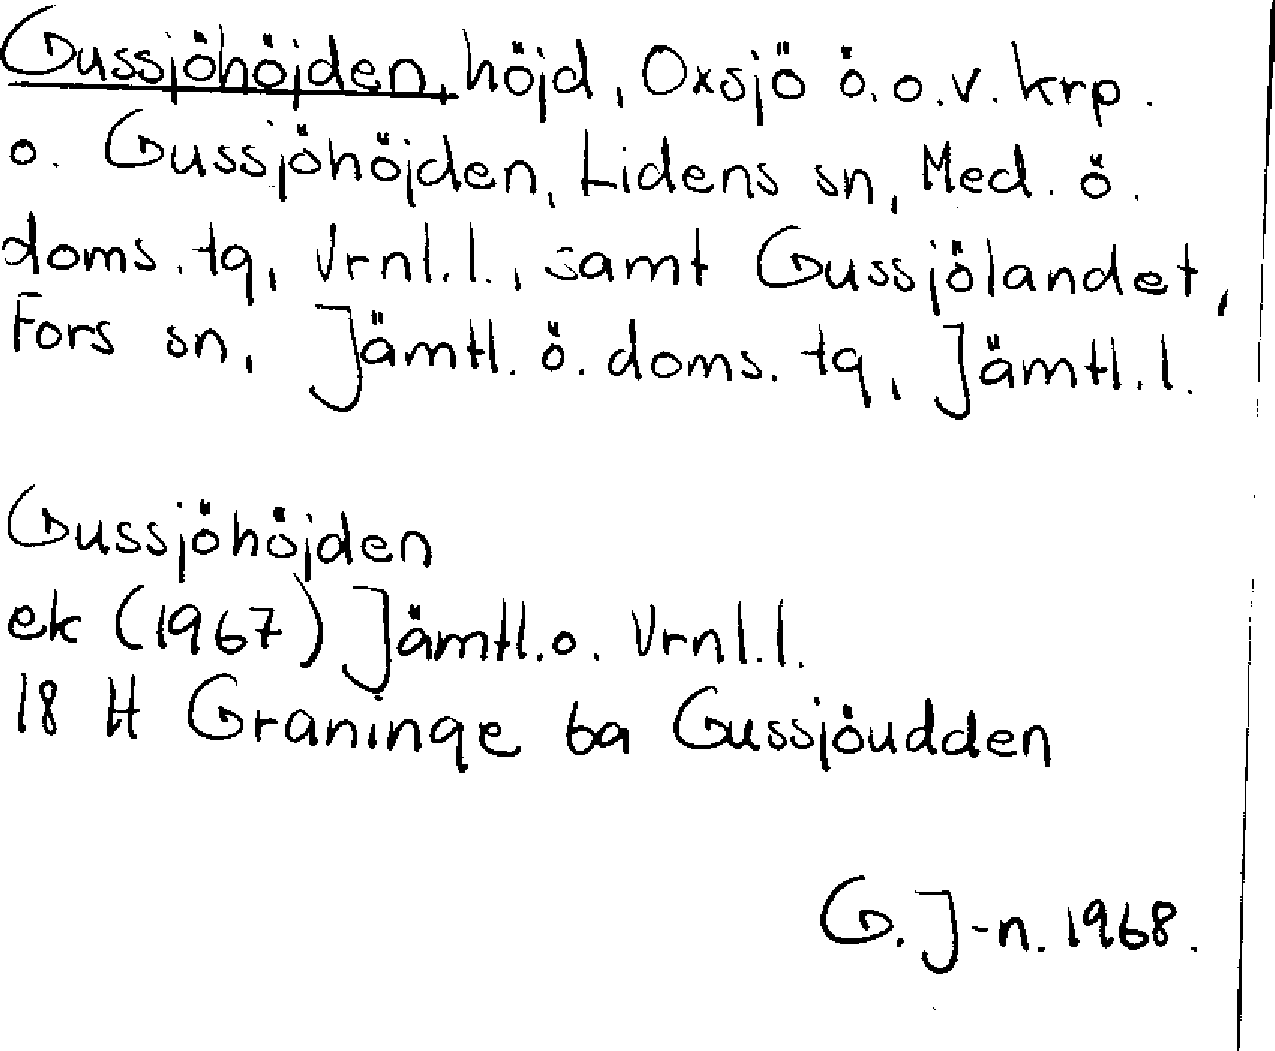 Gussjöhöjden, höjd, Oxsjö ö.o.v. krp.
o. Gussjöhöjden, Lidens sn, Med. ö.
doms. tg, Vrnl.l., samt Gussjölandet,
Fors sn, Jämtl. ö. doms. tg, Jämtl.l.
Gussjöhöjden
ek (1967) Jämtl.o. Vrnl.l.
18 H Graninge 6a Gussjöudden
G. J-n. 1968.